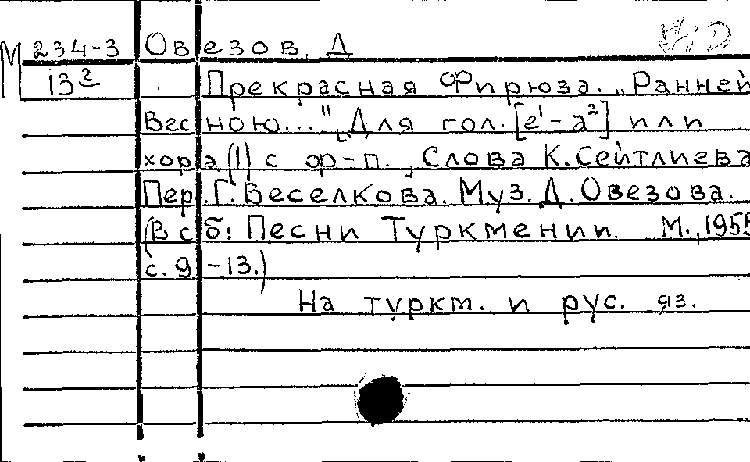 М 234-3 Овезов, Д
13²
Прекрасная Фирюза. „Ранней
весною..." Для гол. [e¹-a²] или
хора (1) с ф-п. Слова К. Сейтлиева
Пер. Г. Веселкова. Муз. Д. Овезова.
(В сб: Песни Туркмении. М., 1955
с. 9-13.)
На туркм. и рус. яз.